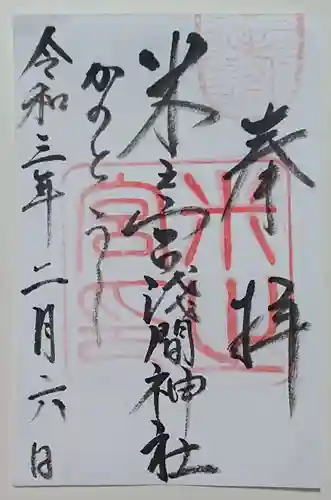 奉拝
米之宮浅間神社
かのとうし
令和三年二月六日
米之宮印